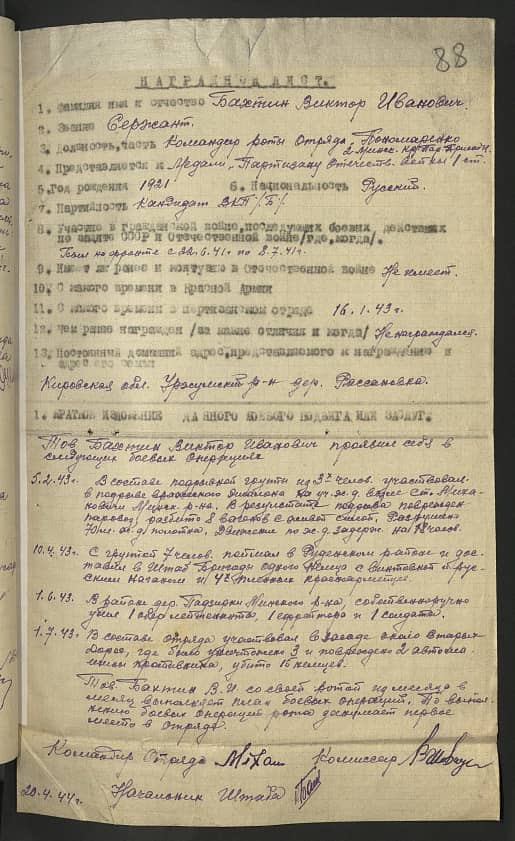 88
НАГРАДНОЙ ЛИСТ.
1. Фамилия имя и отчество Бахтин Виктор Иванович.
2. Звание Сержант.
3. Должность, часть Командир роты отряда, Пономаренко
2 Минск.
4. Представляется к Медали „Партизану Отечеств. 1 ст.
5. Год рождения 1921 6. Национальность Русский.
7. Партийность Кандидат ВКП/б/
8. Участие в гражданской войне, последующих боевых действиях
по защите СССР и Отечественной войне /где, когда/.
Был на фронте с 22.6.41г. по 8.7.41г.
9. Имеет ли ранен и контузия в Отечественной войне Не имеет.
10. С какого времени в Красной Армии
11. С какого времени в партизанском отряде 16.1.43г.
12. Чем ранее награжден /за какие отличия и когда/ Не награждался.
13. Постоянный домашний адрес, представляемого к награждению и
адрес его семьи
Кировская обл. Уржумский р-н дер. Рассановка.
1. КРАТКОЕ ИЗЛОЖЕНИЕ ДАННОГО БОЕВОГО ПОДВИГА ИЛИ ЗАСЛУГ.
Тов. Бахтин Виктор Иванович проявил себя в
следующих боевых операциях
5.2.43г. В составе подрывной группы из 3х челов. участвовал
в подрыве вражеского эшелона на уч. ж.д. ст. Миха-
новичи Минск. р-на. В результате подрыва поврежден
паровоз, разбито 8 вагонов с живой силой, Разрушено
70 м. ж.д. полотна, Движение по ж.д. задерж. на 18 часов.
10.4.43г. С группой 7 челов. поймал в Руденском районе и дос-
тавил в Штаб Бригады одного немца с винтовкой и рус-
ским наганом и 4х пленных красноармейцев.
1.6.43. В районе дер. Падзядки Минского р-на, собственноручно
убил 1 обер лейтенанта, 1 ефрейтора и 1 солдата.
1.7.43г. В составе отряда участвовал в засаде около Старых
Дорог, где было уничтожено 3 и повреждено 2 автома-
шины противника, убито 15 немцев.
Тов. Бахтин В.И. со своей ротой из месяца в
месяц выполняет план боевых операций. По выпол-
нению боевых операций рота занимает первое
место в отряде.
Командир Отряда Комиссар
20.4.44г. Начальник Штаба